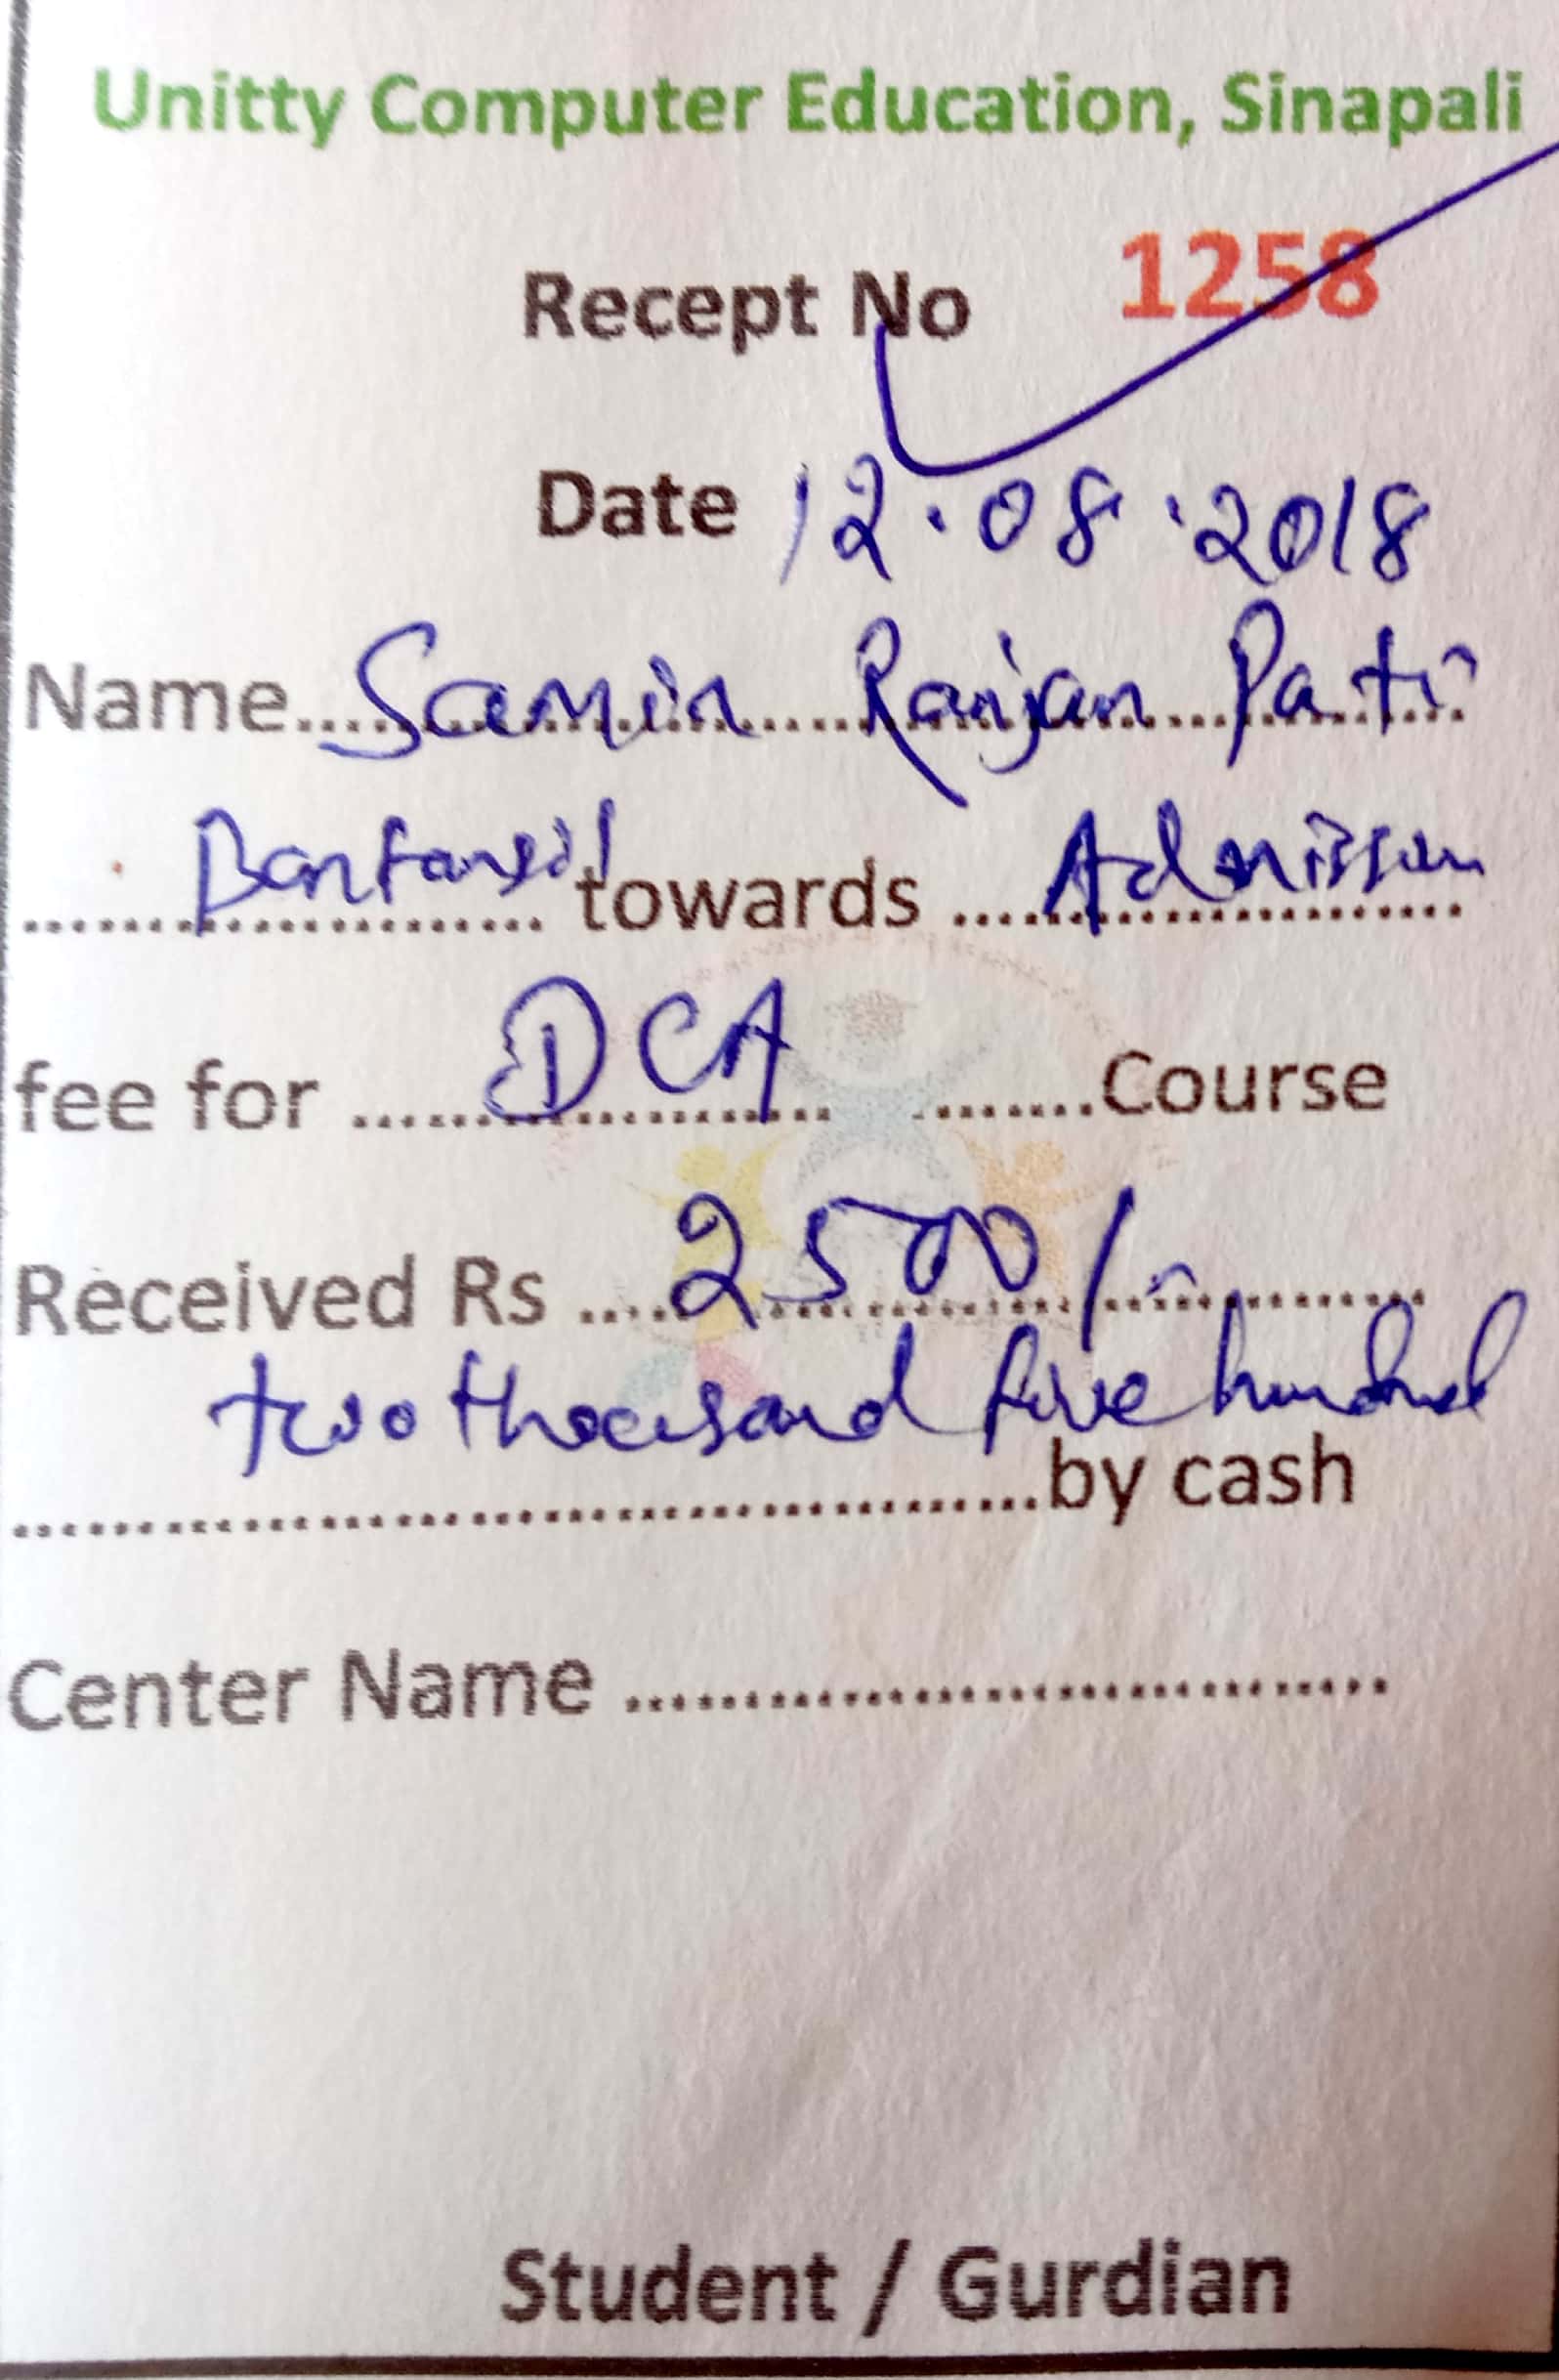 Unitty Computer Education, Sinapali
Recept No 1258
Date 12.08.2018
Name.....Samir Ranjan Pati
..................... towards .... Admission
fee for ...... DCA ........Course
Received Rs .... 2500/-
two thousand five hundred
..........................................by cash
Center Name ................................
Student / Gurdian